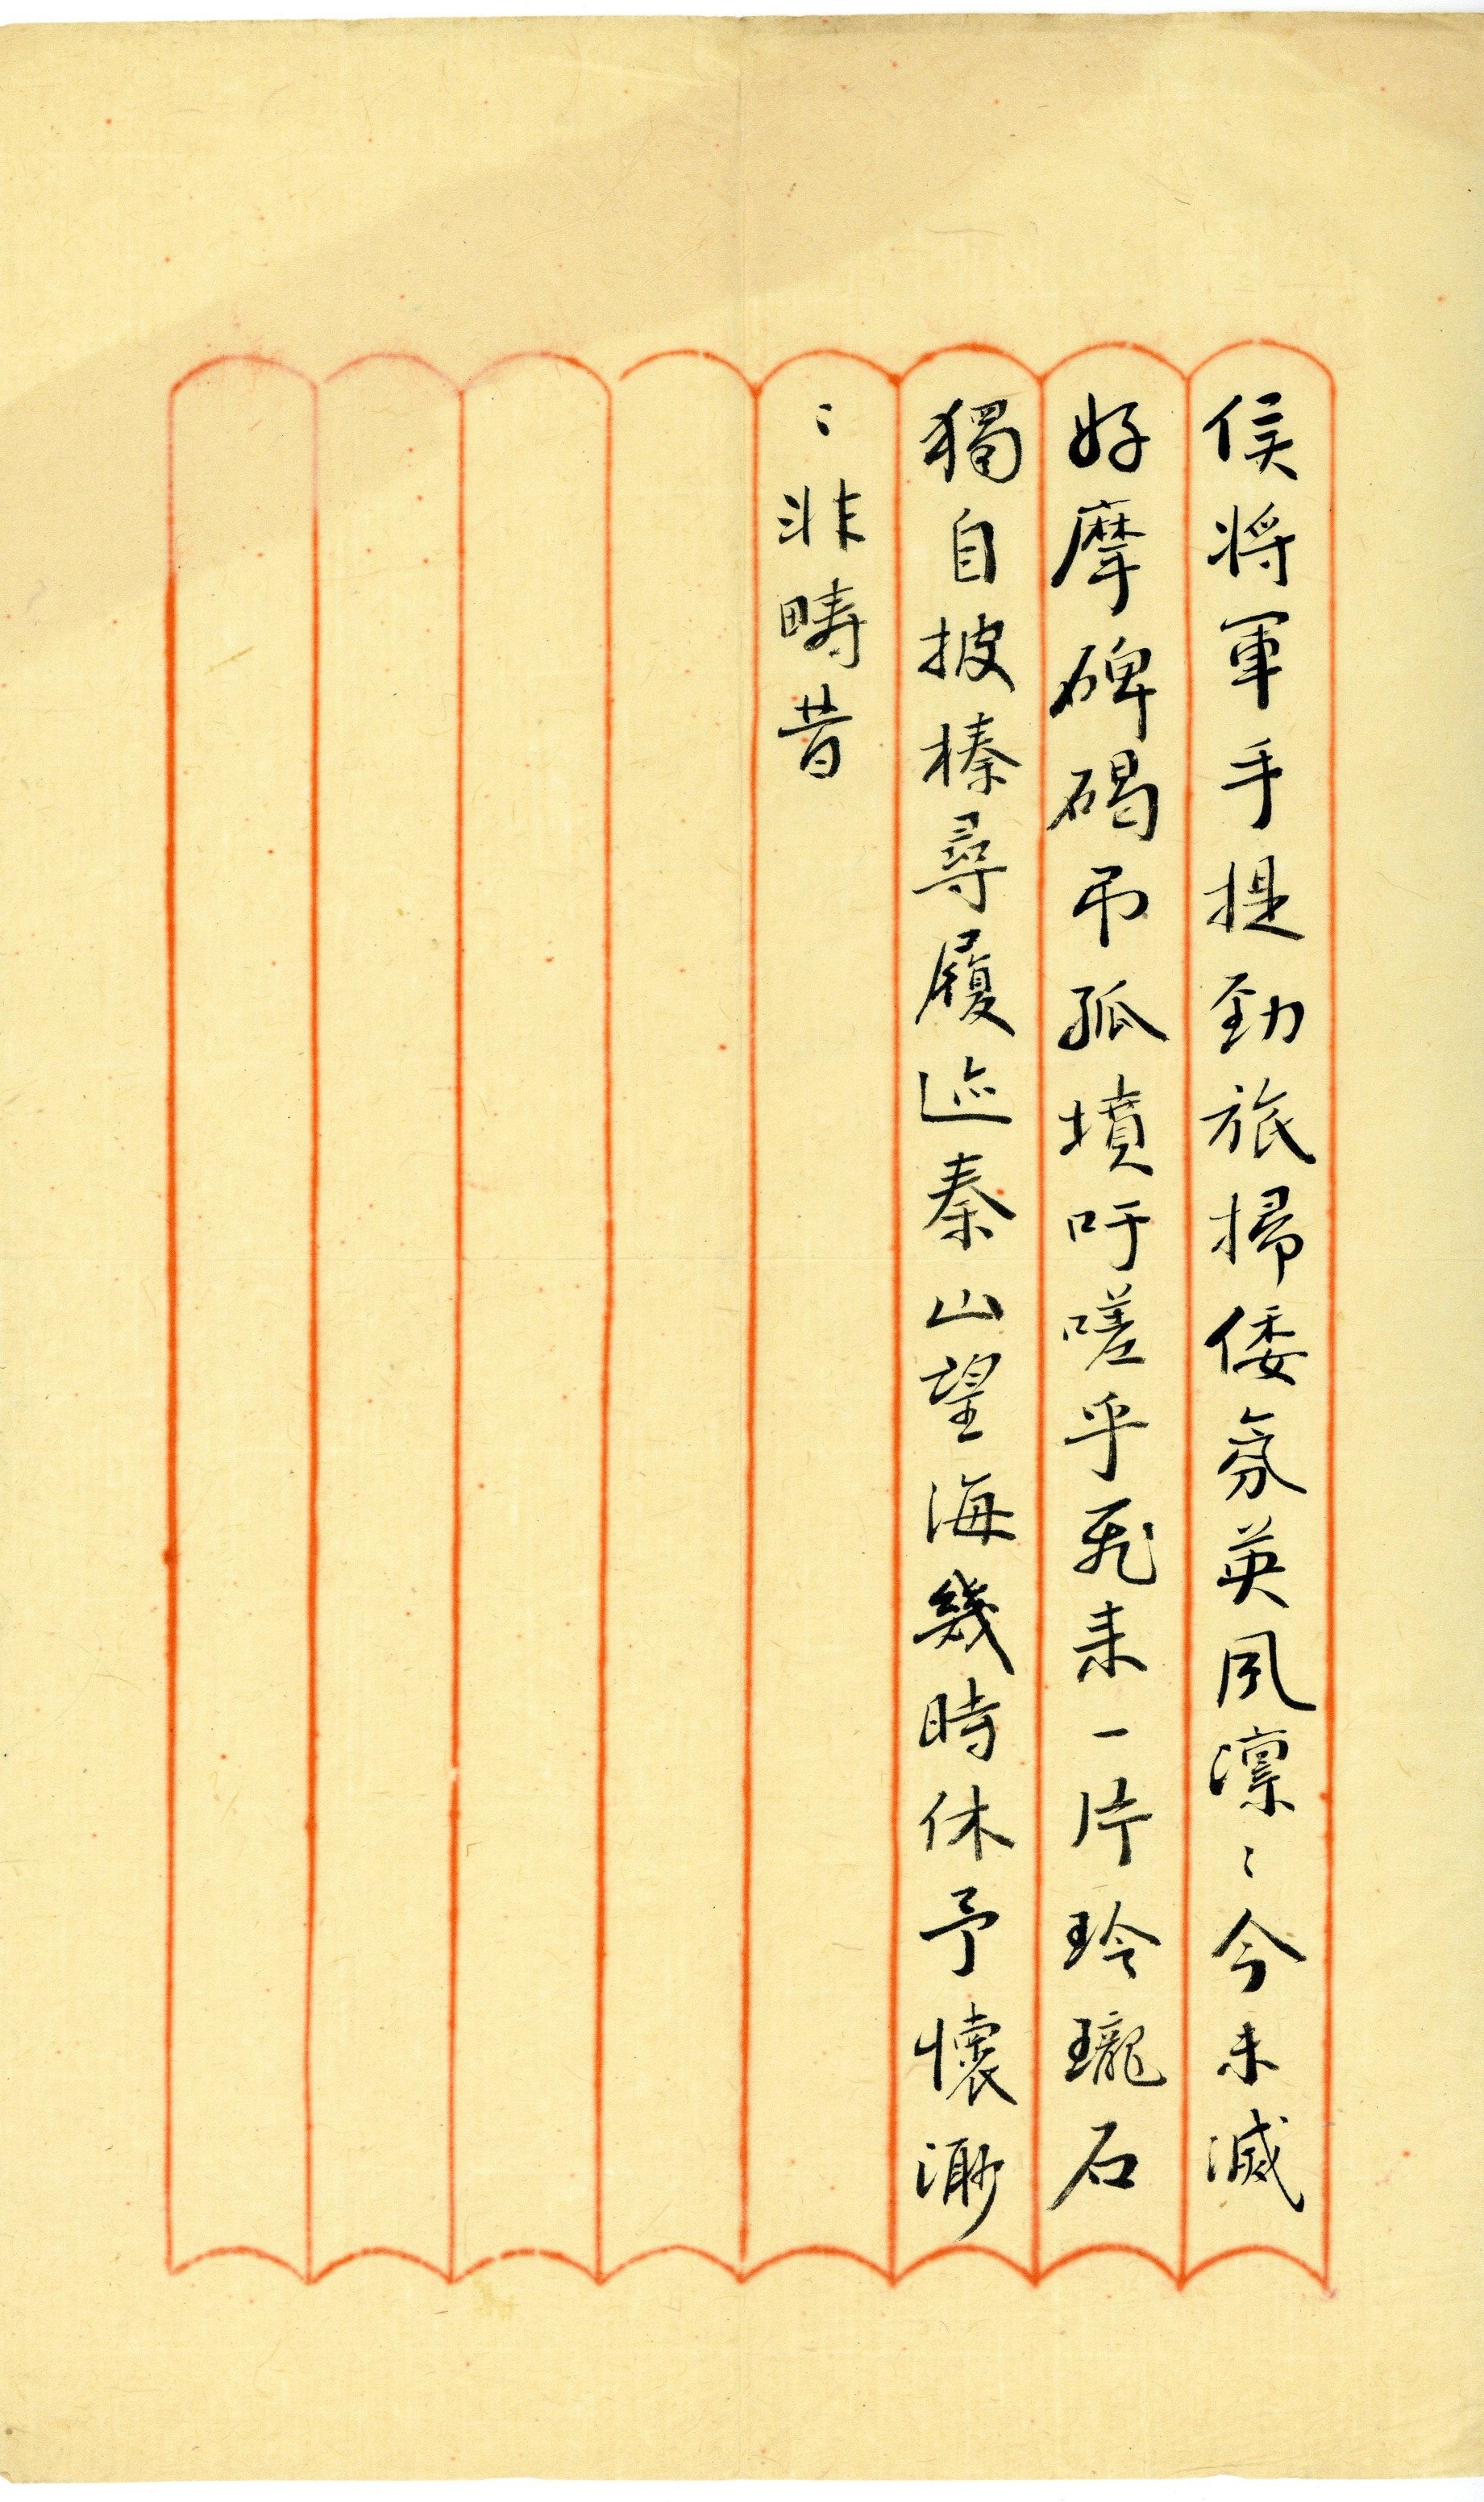 侯將軍手提勁旅掃倭氛英風凛〻今未滅
好摩碑碣弔孤墳吁嗟乎飛来一片玲瓏石
獨自披榛尋履迹秦山望海幾時休予懷渺
〻非疇昔